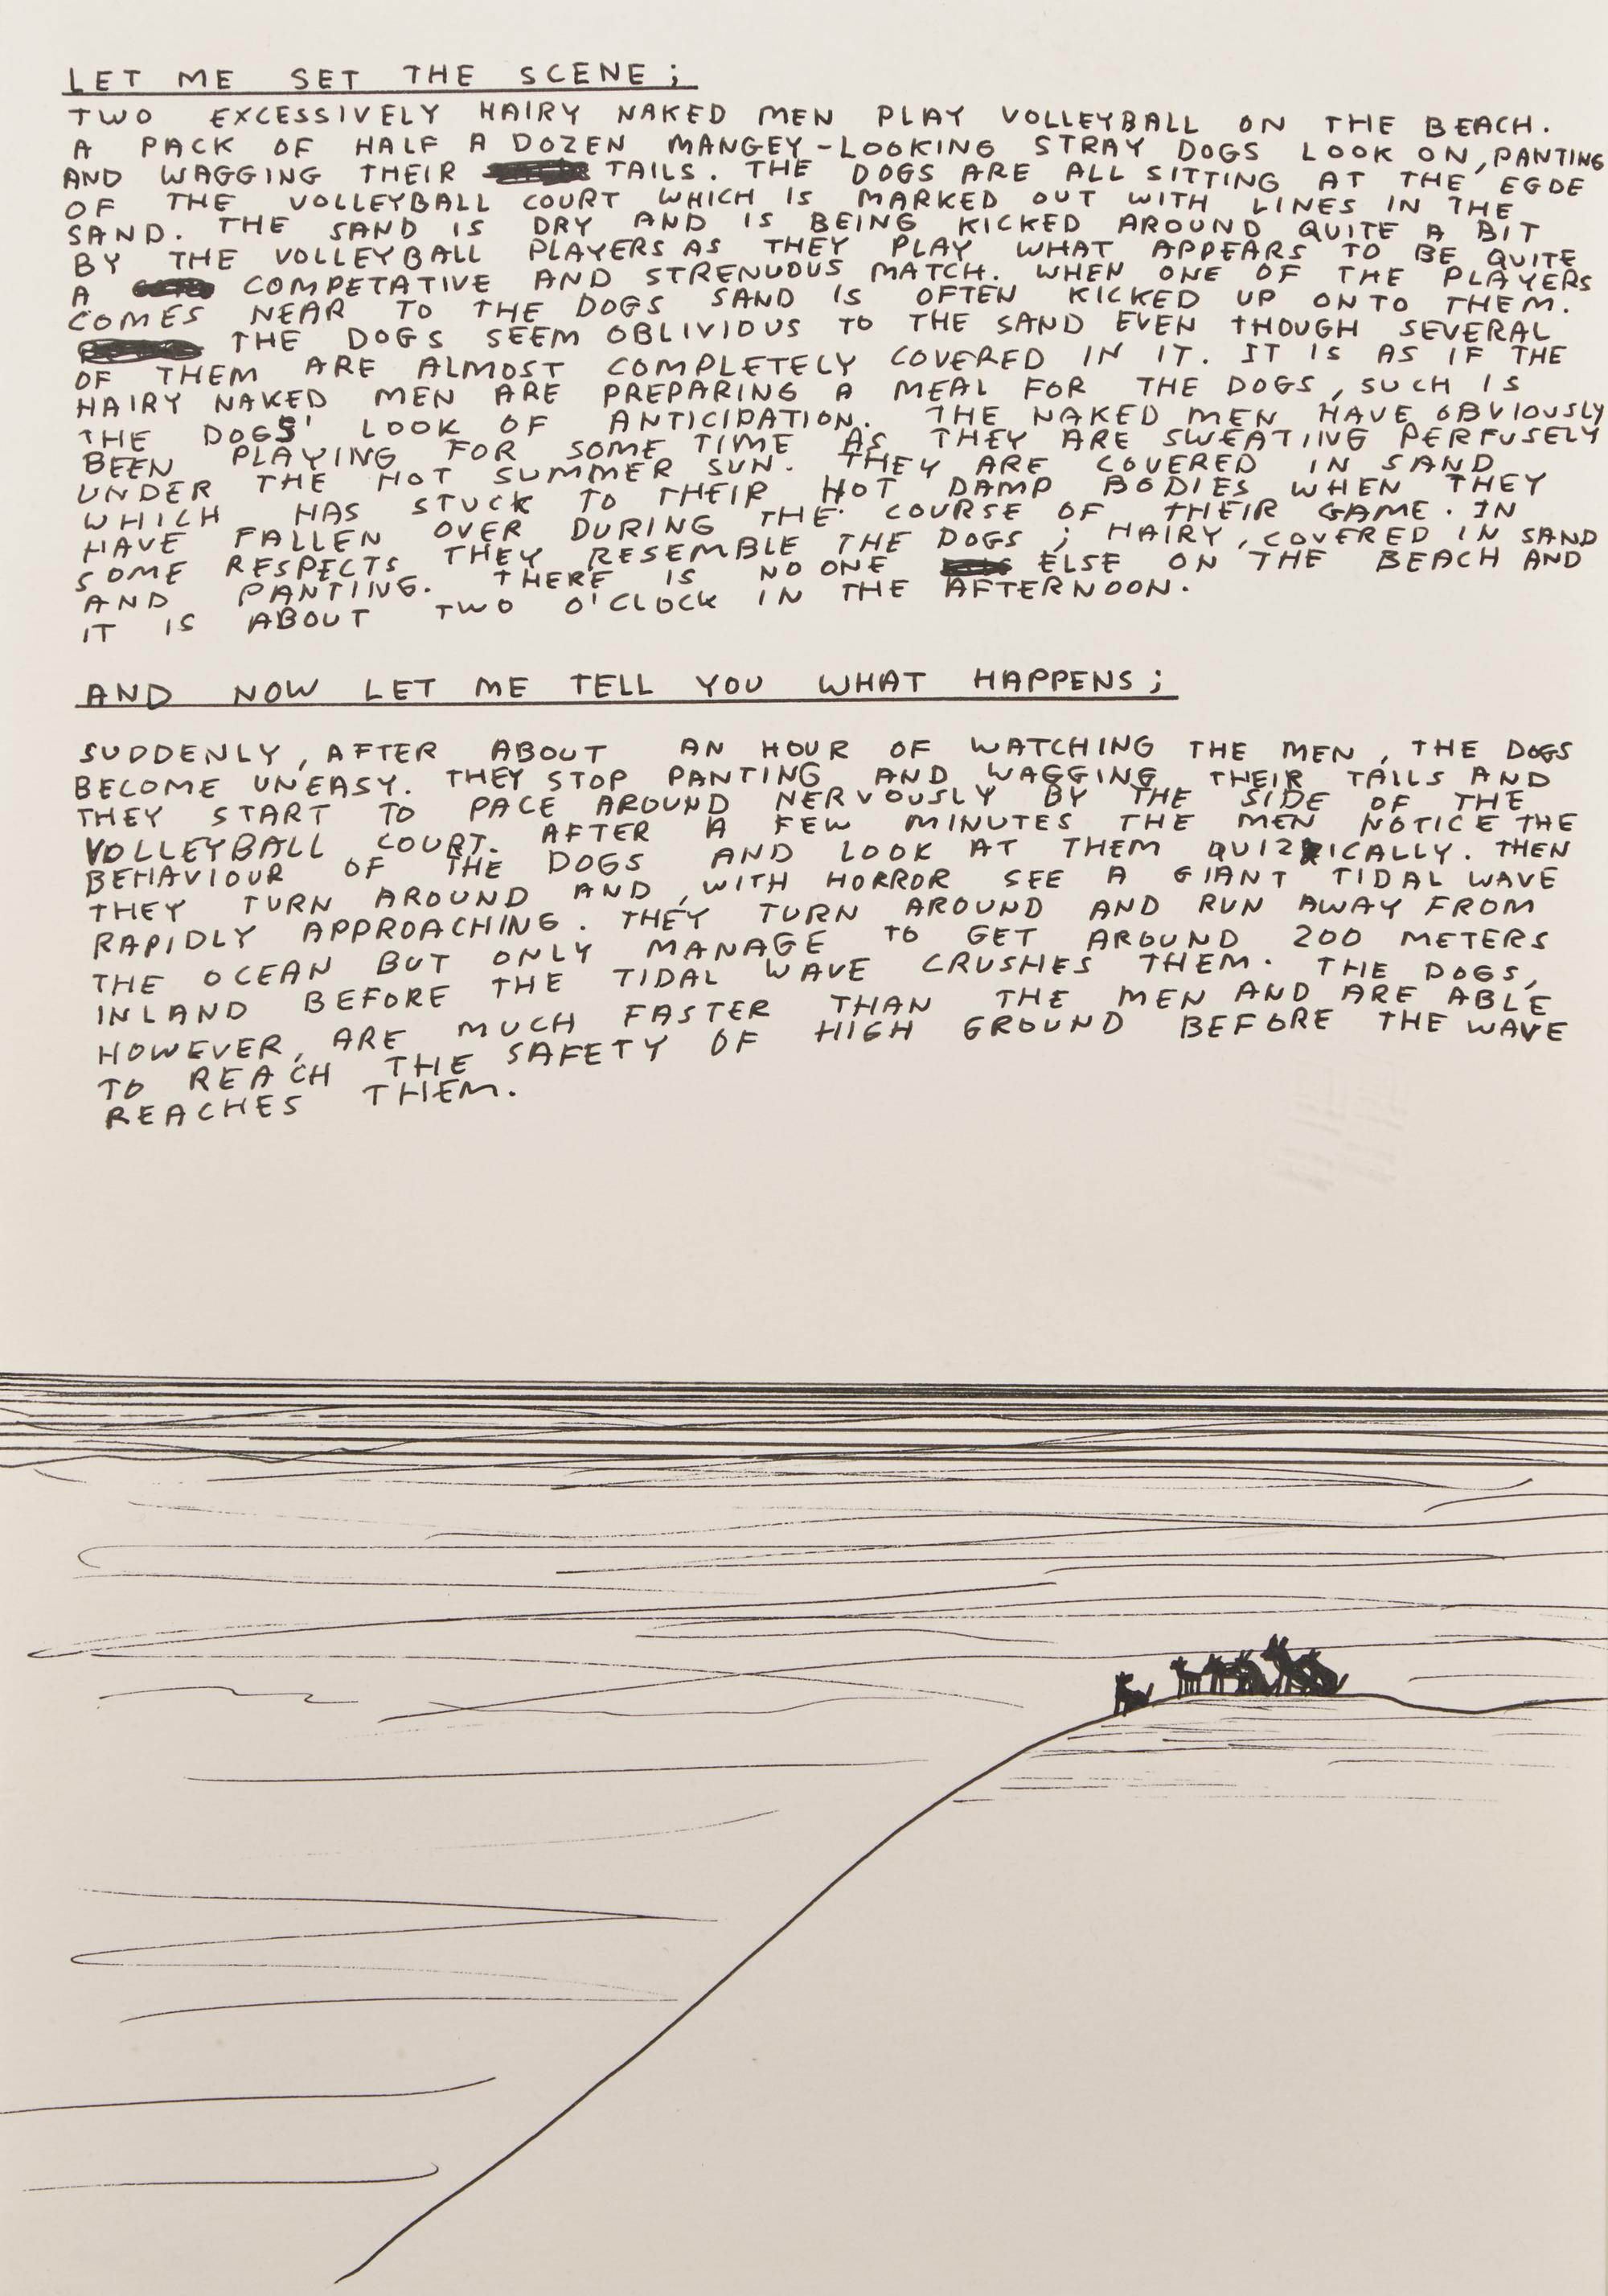 LET ME SET THE SCENE;
TWO EXCESSIVELY HAIRY NAKED MEN PLAY VOLLEYBALL ON THE BEACH.
A PACK OF HALF A DOZEN MANGEY-LOOKING STRAY DOGS LOOK ON, PANTING
AND WAGGING THEIR TAILS. THE DOGS ARE ALL SITTING AT THE EGDE
OF THE VOLLEYBALL COURT WHICH IS MARKED OUT WITH LINES IN THE
SAND. THE SAND IS DRY AND IS BEING KICKED AROUND QUITE A BIT
BY THE VOLLEYBALL PLAYERS AS THEY PLAY WHAT APPEARS TO BE QUITE
A COMPETATIVE AND STRENUOUS MATCH. WHEN ONE OF THE PLAYERS
COMES NEAR TO THE DOGS SAND IS OFTEN KICKED UP ONTO THEM.
THE DOGS SEEM OBLIVIOUS TO THE SAND EVEN THOUGH SEVERAL
OF THEM ARE ALMOST COMPLETELY COVERED IN IT. IT IS AS IF THE
HAIRY NAKED MEN ARE PREPARING A MEAL FOR THE DOGS, SUCH IS
THE DOGS' LOOK OF ANTICIPATION. THE NAKED MEN HAVE OBVIOUSLY
BEEN PLAYING FOR SOME TIME AS THEY ARE SWEATING PERFUSELY
UNDER THE HOT SUMMER SUN. THEY ARE COVERED IN SAND
WHICH HAS STUCK TO THEIR HOT DAMP BODIES WHEN THEY
HAVE FALLEN OVER DURING THE COURSE OF THEIR GAME. IN
SOME RESPECTS THEY RESEMBLE THE DOGS; HAIRY, COVERED IN SAND
AND PANTING. THERE IS NO ONE ELSE ON THE BEACH AND
IT IS ABOUT TWO O'CLOCK IN THE AFTERNOON.
AND NOW LET ME TELL YOU WHAT HAPPENS;
SUDDENLY, AFTER ABOUT AN HOUR OF WATCHING THE MEN, THE DOGS
BECOME UNEASY. THEY STOP PANTING AND WAGGING THEIR TAILS AND
THEY START TO PACE AROUND NERVOUSLY BY THE SIDE OF THE
VOLLEYBALL COURT. AFTER A FEW MINUTES THE MEN NOTICE THE
BEHAVIOUR OF THE DOGS AND LOOK AT THEM QUIZZICALLY. THEN
THEY TURN AROUND AND, WITH HORROR SEE A GIANT TIDAL WAVE
RAPIDLY APPROACHING. THEY TURN AROUND AND RUN AWAY FROM
THE OCEAN BUT ONLY MANAGE TO GET AROUND 200 METERS
INLAND BEFORE THE TIDAL WAVE CRUSHES THEM. THE DOGS,
HOWEVER, ARE MUCH FASTER THAN THE MEN AND ARE ABLE
TO REACH THE SAFETY OF HIGH GROUND BEFORE THE WAVE
REACHES THEM.